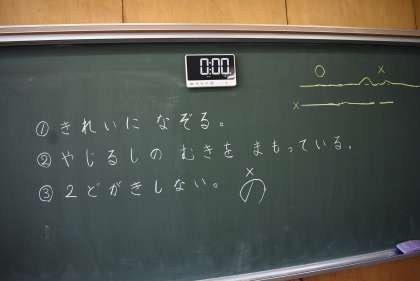 0:00
○ ×
×
① きれいに なぞる。
② やじるしの むきを まもっている。
③ 2どがきしない。
×
の